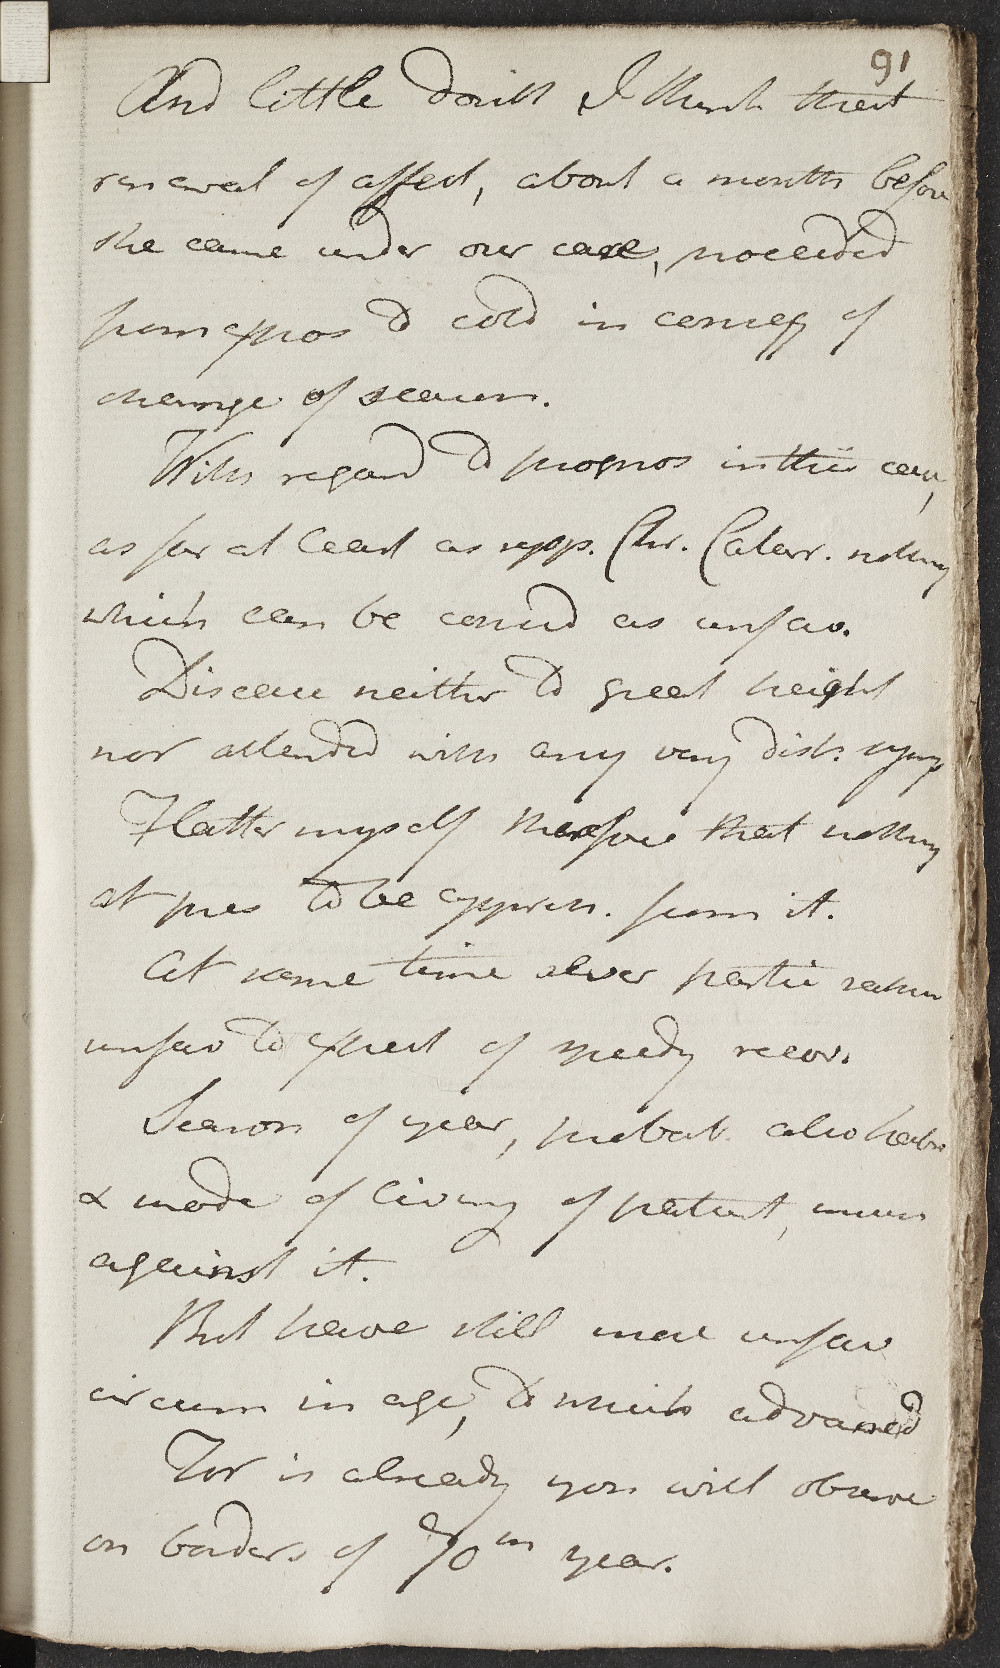 91
And little doubt I think that
renewal of affect, about a month before
she came under our care, proceeded
from expos to cold in conseq of
change of season.
With regard to prognos in this case,
as far at least as resp. Chr. Catarr. nothing
which can be consid as unfav.
Disease neither to great height
nor attended with any very dist. symp
Flatter myself therefore that nothing
at pres to be appreh. from it.
At same time sever partic rather
unfav to expect of speedy recov.
Season of year, probab. also habit
& mode of living of patient, much
against it.
But have still more unfav
circum in age, to which advanced
For is already you will observe
on borders of 70th year.